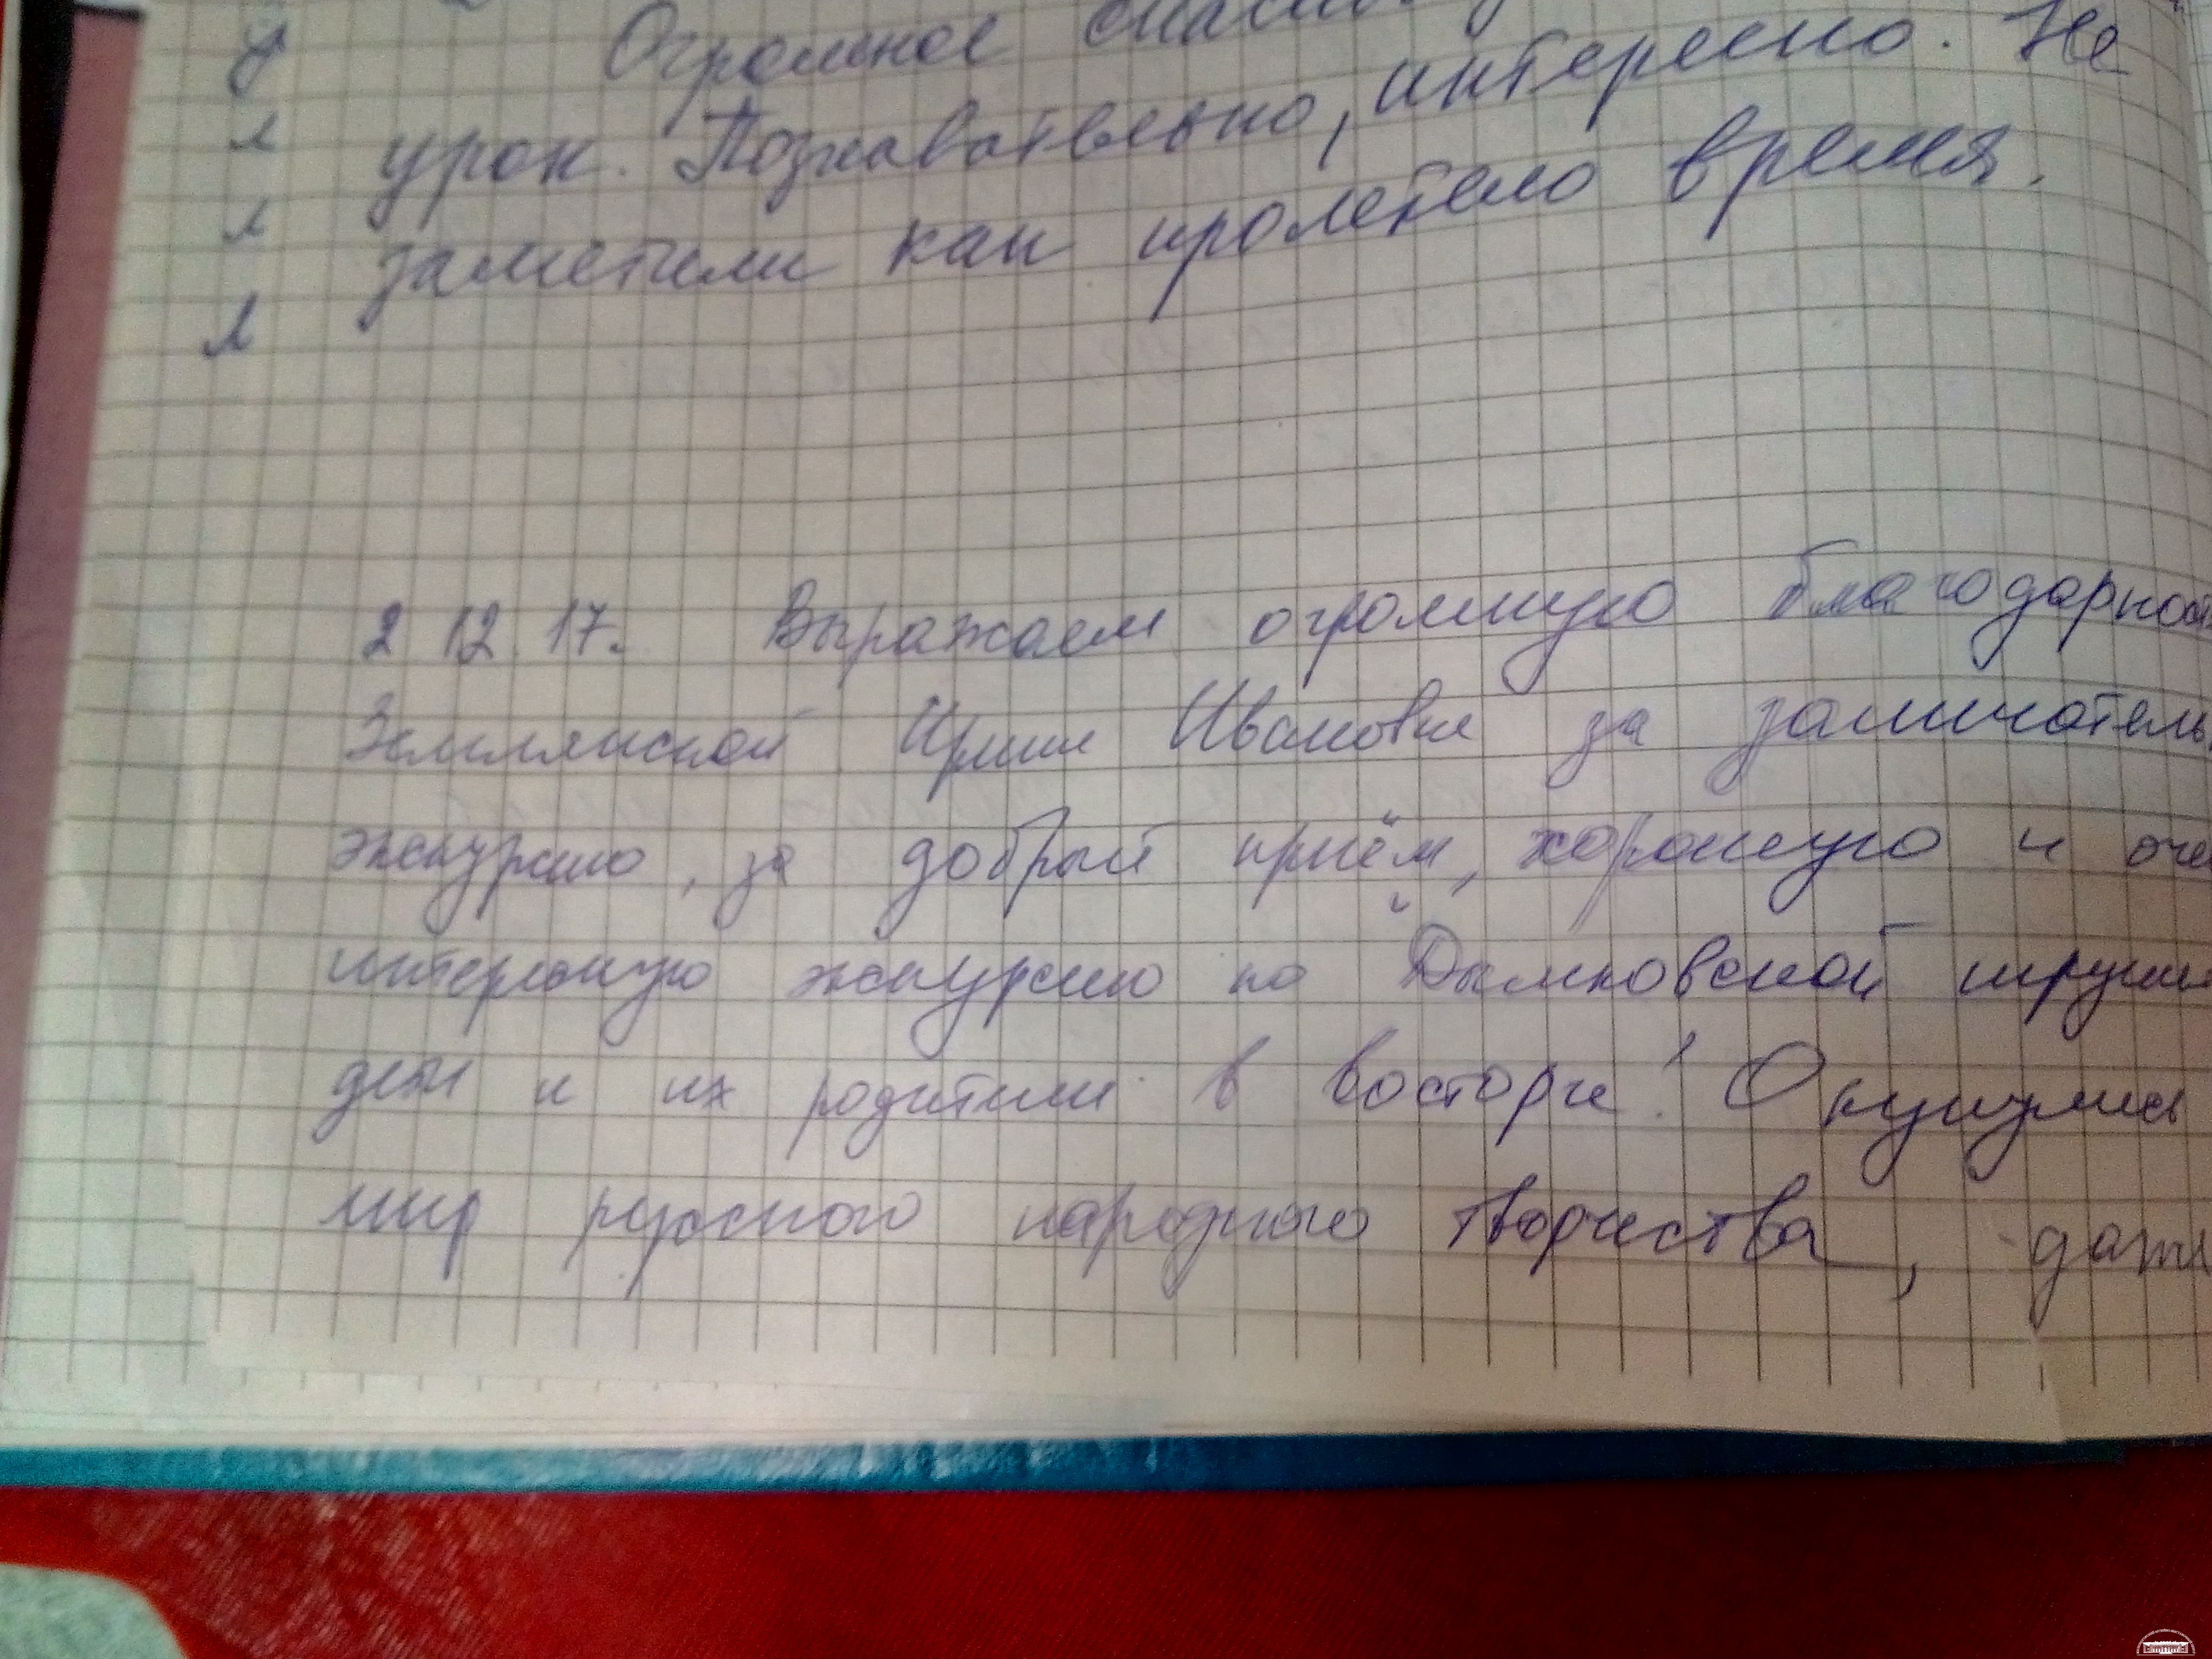 Огромное спасибо
урок. Познавательно, интересно. Не
заметили как пролетело время.
2 12 17. Выражаем огромную благодарност
Землянской Ирине Ивановне за замечатель
экскурсию, за добрый приём, хорошую и оче
интересную экскурсию по "Дымковской игрушке
дети и их родители в восторге! Окунулись
мир русского народного творчества, даже